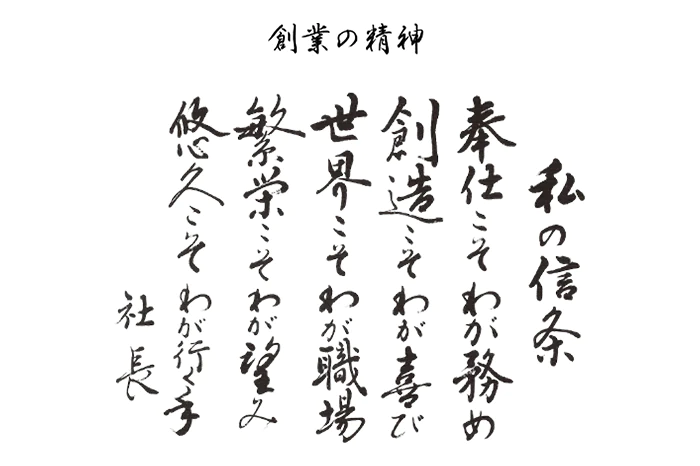 創業の精神
私の信条
奉仕こそわが務め
創造こそわが喜び
世界こそわが職場
繁栄こそわが望み
悠久こそわが行く手
社長